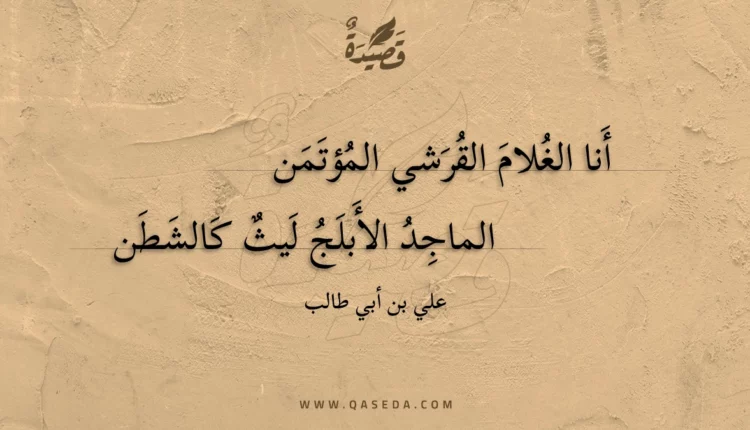 قَصِيدَةٌ
أَنا الغُلامَ القُرَشي المُؤتَمَن
الماجِدُ الأَبلَجُ لَيثٌ كَالشَطَن
علي بن أبي طالب
WWW.QASEDA.COM